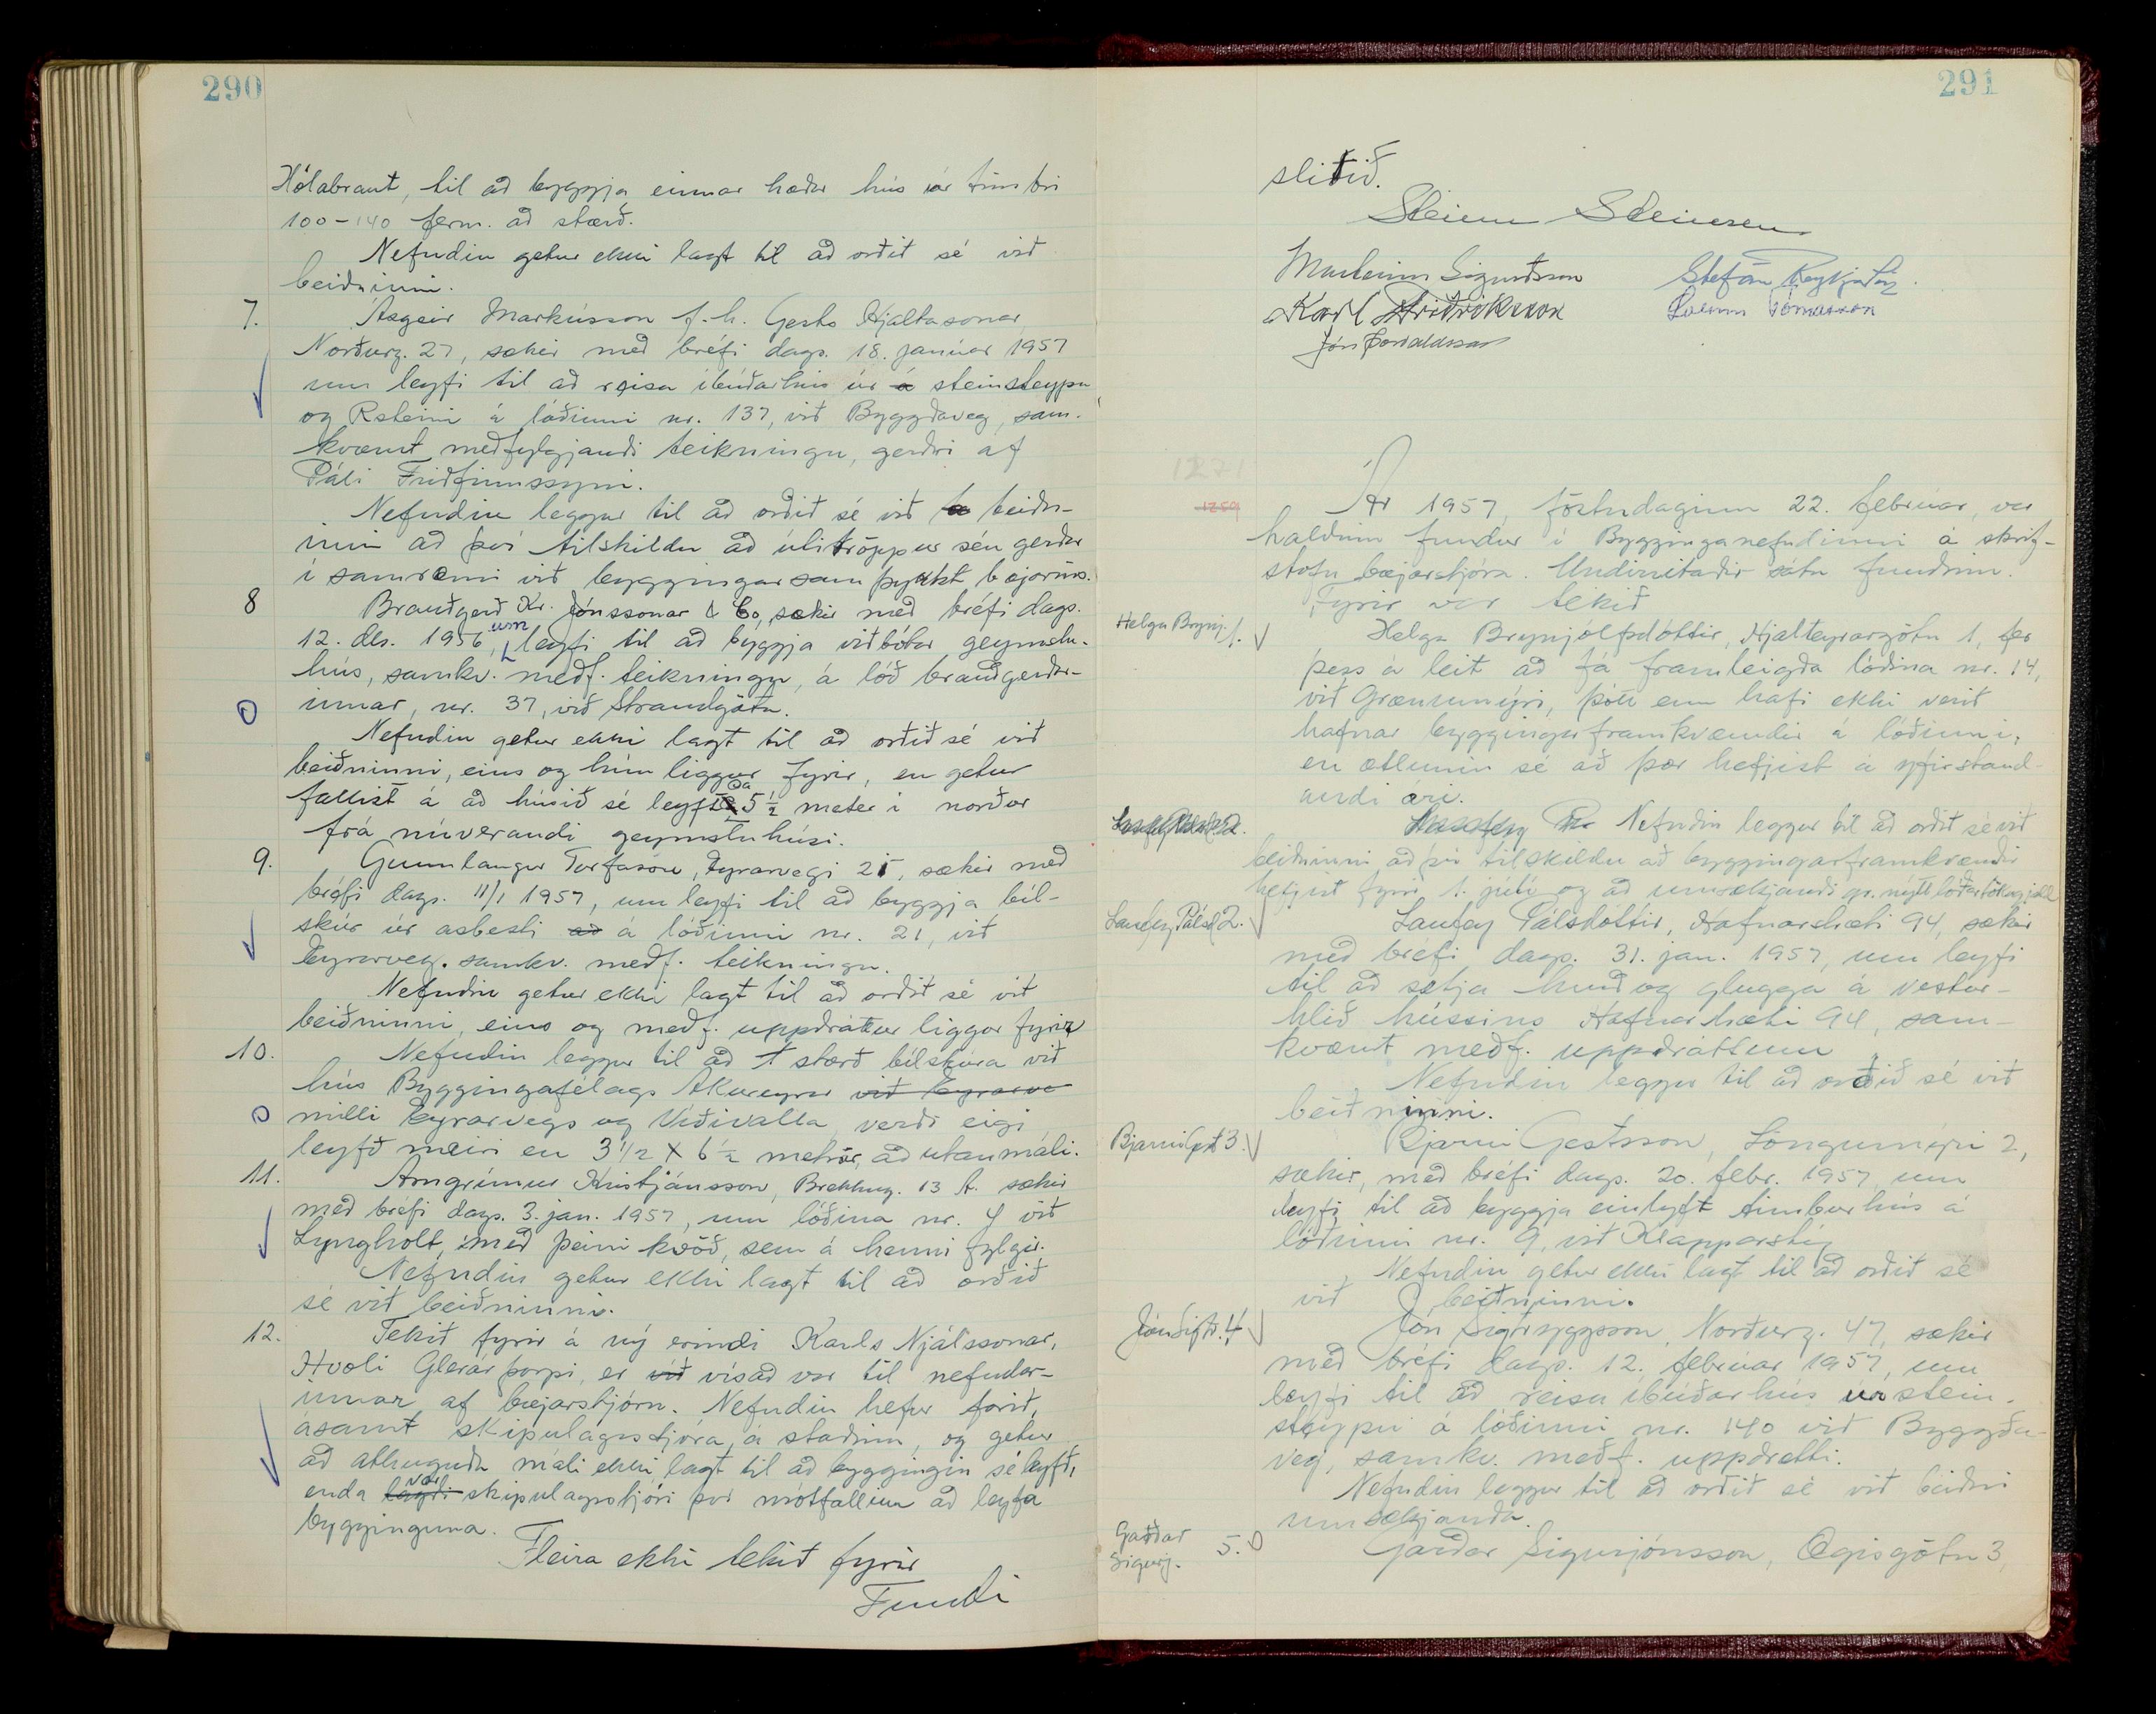 290
Hólabraut, til að byggja einnar hæðar hús úr timbri
100-140 ferm. að stærð.
Nefndin getur ekki lagt til að orðið sé við
beiðninni.
7. Ásgeir Markússon f.h. Gests Hjaltasonar
Norðurg. 27, sækir með bréfi dags. 18. janúar 1957
um leyfi til að reisa íbúðarhús úr steinsteypu
og Rsteini á lóðinni nr. 137, við Byggðaveg, sam-
kvæmt meðfylgjandi teikningu, gerðri af
Páli Friðfinnssyni.
Nefndin leggur til að orðið sé við beiðn-
inni að því tilskildu að útitröppur séu gerðar
í samræmi við byggingarsamþykkt bæjarins.
8 Brauðgerð Kr. Jónssonar & Co, sækir með bréfi dags.
12. des. 1956, um leyfi til að byggja viðbótar geymslu-
hús, samkv. meðf. teikningu, á lóð brauðgerðar-
innar, nr. 37, við Strandgötu.
Nefndin getur ekki lagt til að orðið sé við
beiðninni, eins og hún liggur fyrir, en getur
fallist á að húsið sé leyft ca 5 1/2 meter í norður
frá núverandi geymsluhúsi.
9. Gunnlaugur Torfason, Eyrarvegi 21, sækir með
bréfi dags. 11/1 1957, um leyfi til að byggja bíl-
skúr úr asbesti að á lóðinni nr. 21, við
Eyrarveg. samkv. meðf. teikningu.
Nefndin getur ekki lagt til að orðið sé við
beiðninni, eins og meðf. uppdráttur liggur fyrir
10. Nefndin leggur til að stærð bílskúra við
hús Byggingafélags Akureyrar við Eyrarve
milli Eyrarvegs og Víðivalla, verði eigi
leyfð meiri en 3 1/2 X 6 1/2 metrar, að utanmáli.
11. Arngrímur Kristjánsson, Brekkug. 13 A. sækir
með bréfi dags. 3. jan. 1957, um lóðina nr. 4 við
Lyngholt, með þeirri kvöð, sem á henni fylgir.
Nefndin getur ekki lagt til að orðið
sé við beiðninni.
12. Tekið fyrir á ný erindi Karls Njálssonar,
Hvoli Glerárþorpi, er við vísað var til nefndar-
innar af bæjarstjórn. Nefndin hefur farið,
ásamt skipulagsstjóra, á staðinn, og getur
að athuguðu máli ekki lagt til að byggingin sé leyfð,
enda lagði var skipulagsstjóri því mótfallinn að leyfa
bygginguna.
Fleira ekki tekið fyrir
Fundi
291
slitið.
Steinn Steinsen
Marteinn Sigurðsson Stefán Reykjalín
Karl Friðriksson Tómasson
Jón Þorvaldsson
1271
1259
Ár 1957, föstudaginn 22. febrúar, var
haldinn fundur í Bygginganefndinni á skrif-
stofu bæjarstjóra. Undirritaðir sátu fundinn.
Fyrir var tekið
Helga Brynj. 1. Helga Brynjólfsdóttir, Hjalteyrargötu 1, fer
þess á leit að fá framleigða lóðina nr. 14,
við Grænumýri, þótt enn hafi ekki verið
hafnar byggingarframkvæmdir á lóðinni,
en ætlunin sé að þær hefjist á yfirstand-
andi ári.
2. Nefndin leggur til að orðið sé við
beiðninni að því tilskildu að byggingarframkvæmdir
hefjist fyrir 1. júlí og að umsækjandi gr. nýtt lóðartökugjald
Laufey Pálsd 2. Laufey Pálsdóttir, Hafnarstræti 94, sækir
með bréfi dags. 31. jan. 1957, um leyfi
til að setja hurð og glugga á vestur-
hlið hússins Hafnarstræti 94, sam-
kvæmt meðf. uppdráttum.
Nefndin leggur til að orðið sé við
beiðninni.
Bjarni Gest 3. Bjarni Gestsson, Löngumýri 2,
sækir, með bréfi dags. 20. febr. 1957, um
leyfi til að byggja einlyft timburhús á
lóðinni nr. 9, við Klapparstíg
Nefndin getur ekki lagt til að orðið sé
við beiðninni.
Jón Sigtr. 4. Jón Sigtryggsson, Norðurg. 47, sækir
með bréfi dags. 12. febrúar 1957, um
leyfi til að reisa íbúðarhús úr stein-
steypu á lóðinni nr. 140 við Byggða-
veg, samkv. meðf. uppdrætti.
Nefndin leggur til að orðið sé við beiðni
umsækjanda.
Garðar
Sigurj. 5. Garðar Sigurjónsson, Ægisgötu 3,